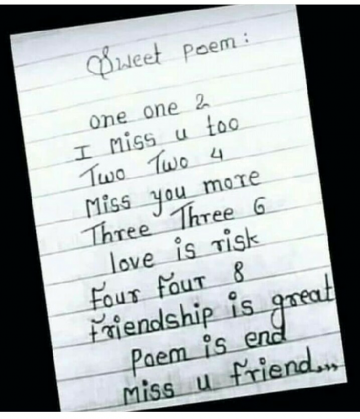 Sweet Poem:
one one 2
I Miss u too
Two Two 4
Miss you more
Three Three 6
love is risk
Four Four 8
Friendship is great
Poem is end
Miss u friend,,,